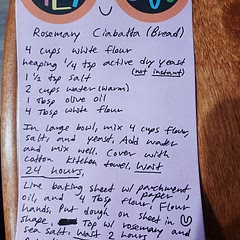 Rosemary Ciabatta (Bread)
4 cups white flour
heaping 1/4 tsp active dry yeast
(not instant)
1 1/2 tsp salt
2 cups water (warm)
1 Tbsp olive oil
4 Tbsp white flour
In large bowl, mix 4 cups flour,
salt, and yeast. Add water
and mix well. Cover with
cotton kitchen towel, Wait
24 hours.
Line baking sheet w/ parchment
paper,
oil, and 4 Tbsp flour, flour
hands, Put dough on sheet in U
shape. Top w/ rosemary and
sea salt, Wait 2 hours.